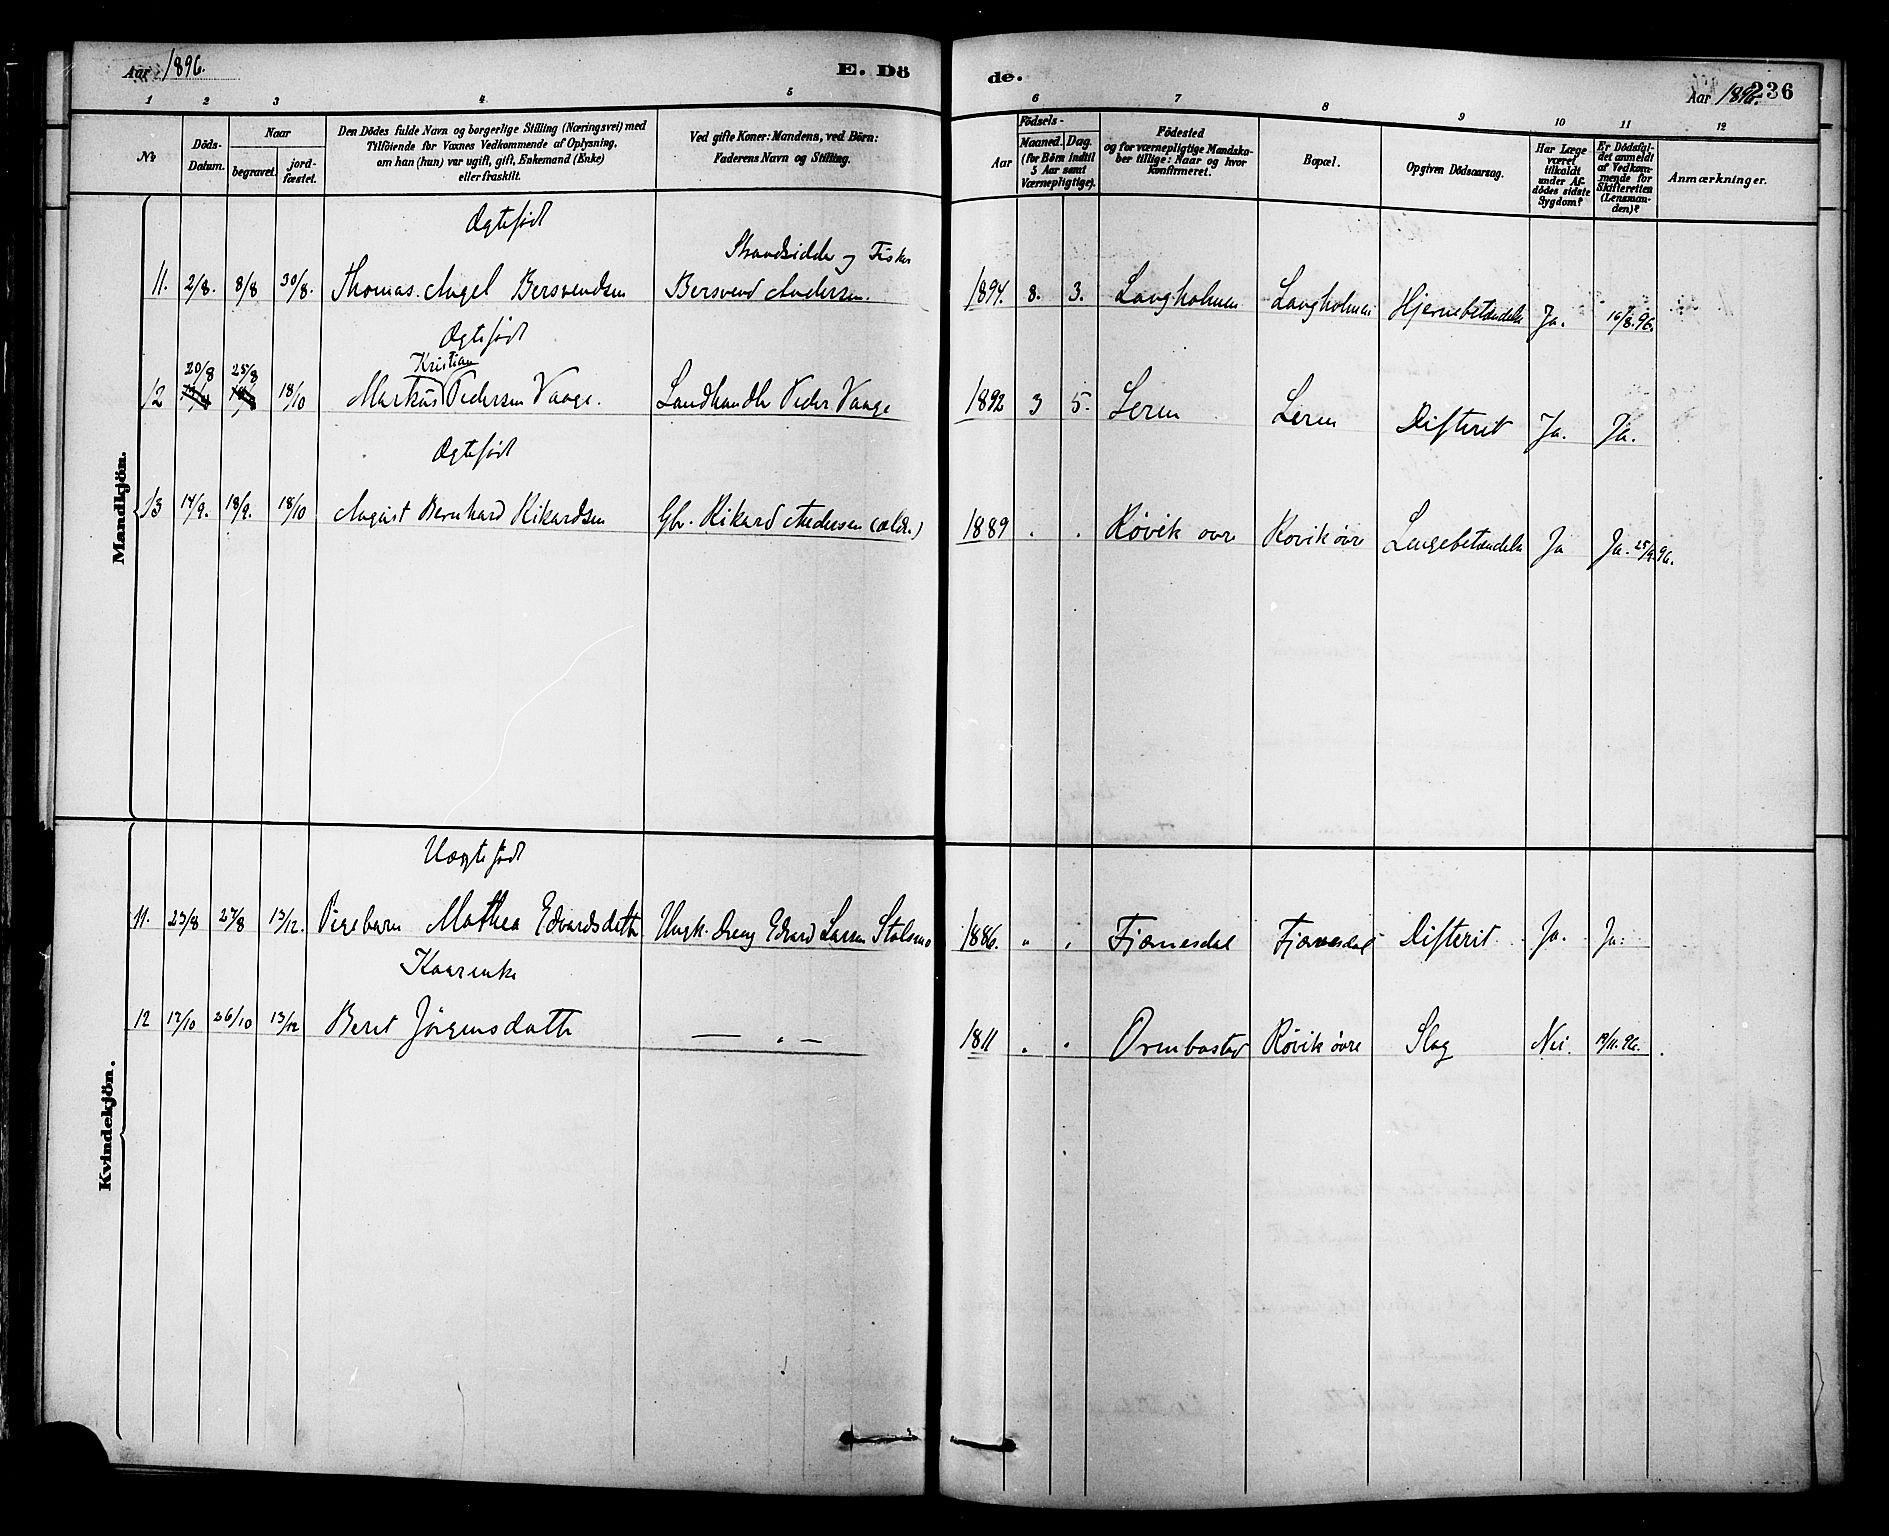 Aar 1896.
E. Dö
de.
Aar 1896.
236
1 2 3 4 5 6 7 8 9 10 11 12
No
Döds-
Datum.
Naar
begravet.
jord-
fæstet.
Den Dödes fulde Navn og borgerlige Stilling (Næringsvei) med
Tilföiende for Voxnes Vedkommende af Oplysning,
om han (hun) var ugift, gift, Enkemand (Enke)
eller fraskilt.
Ved gifte Koner: Mandens, ved Börn:
Faderens Navn og Stilling.
Födsels-
Aar
Maaned. Dag.
(for Börn indtil
5 Aar samt
Værnepligtige).
Födested
og for værnepligtige Mandska-
ber tillige: Naar og hvor
konfirmeret.
Bopæl.
Opgiven Dödsaarsag.
Har Læge
været
tilkaldt
under Af-
dödes sidste
Sygdom?
Er Dödsfal-
det anmeldt
af Vedkom-
mende for
Skifteretten
(Lensman-
den)?
Anmærkninger.
Mandkjön.
Ægtefødt
Strandsidder og Fisker
11. 2/8. 8/8 30/8. Thomas Angel Bersvendsen Bersvend Andersen. 1894. 8. 3. Langholmen Langholmen Hjernebetændelse Ja. 16/8.96.
Ægtefødt
Kristian
20/8 25/8
12 18/10 Markus Pedersen Vaage. Landhandler Peder Vaage 1892 3 5. Leren Leren Difterit Ja. Ja.
Ægtefødt
13 14/9. 18/9. 18/10 August Bernhard Rikardsen Gbr. Rikard Andersen (ældre) 1889 Røvik øvre Røvik øvre Lungebetændelse Ja Ja. 25/9 96.
Kvindekjön.
Uægtefødt
11. 23/8 27/8 13/12. Pigebarn Mathea Edvardsdatter Ungk. Dreng Edvard Larsen Stolsmo 1886. " " Fjærnesdal Fjærnesdal Difterit Ja. Ja.
Kaarenke
12 17/10 26/10 13/12 Beret Jörgensdatter — " — 1811 Røvik øvre Slag Nei. 19/11.96.